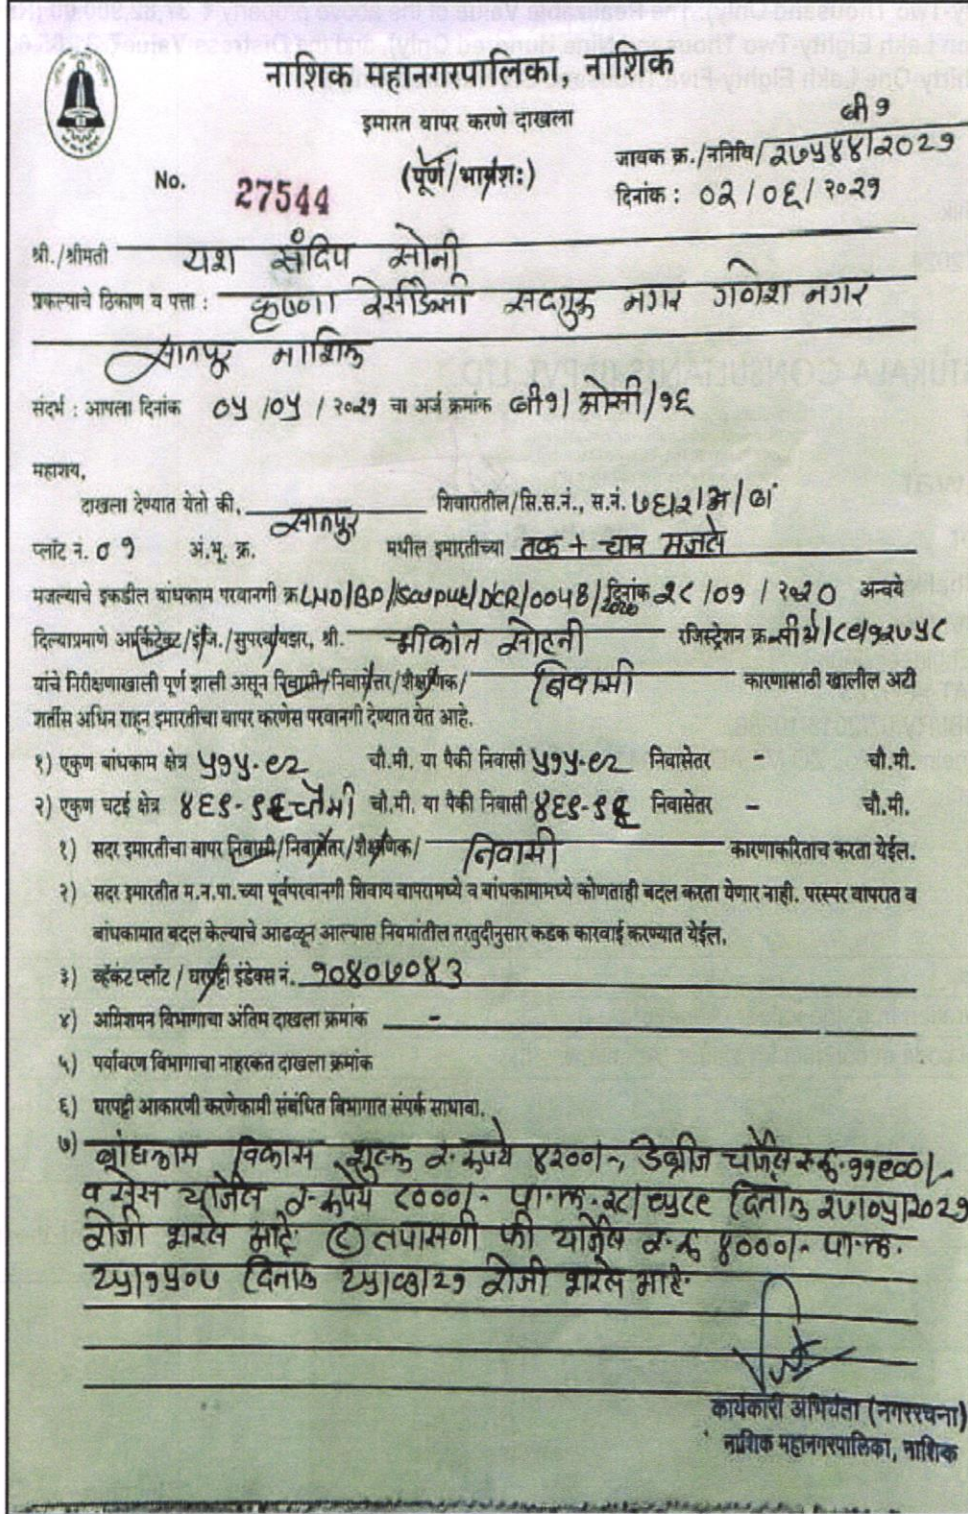 नाशिक महानगरपालिका, नाशिक
इमारत वापर करणे दाखला
(पूर्ण/भागंशः)
बी१
जावक क्र./ननिवि/२७५४४/२०२१
No. 27544
दिनांक : ०२/०६/२०२१
श्री./श्रीमती यश संदिप सोनी
प्रकल्पाचे ठिकाण व पत्ता : कृष्णा रेसीडेन्सी सदगुरु नगर गणेश नगर
सातपूर नाशिक
संदर्भ : आपला दिनांक ०५/०५/२०२१ चा अर्ज क्रमांक बी१/ओसी/१६
महाशय,
दाखला देण्यात येतो की, सातपूर शिवारातील/सि.स.नं., स.नं. ७६/२/अ/
प्लॉट नं. ०१ अं.भू. क्र. मधील इमारतीच्या तळ + चार मजले
मजल्याचे इकडील बांधकाम परवानगी क्र LND/BP/Satpur/DCR/0048/2020 दिनांक २८/०१/२०२० अन्वये
दिल्याप्रमाणे आर्किटेक्ट/इंजि./सुपरवायझर, श्री. श्रीकांत रजिस्ट्रेशन क्र
यांचे निरीक्षणाखाली पूर्ण झाली असून निवासी/निवासेतर/शैक्षणिक/ निवासी कारणासाठी खालील अटी
शर्तीस अधिन राहून इमारतीचा वापर करणेस परवानगी देण्यात येत आहे.
१) एकुण बांधकाम क्षेत्र ५१५.९२ चौ.मी. या पैकी निवासी ५१५.९२ निवासेतर - चौ.मी.
२) एकुण चटई क्षेत्र ४६९.९६ चौमी चौ.मी. या पैकी निवासी ४६९.९६ निवासेतर - चौ.मी.
१) सदर इमारतीचा वापर निवासी/निवासेतर/शैक्षणिक/ निवासी कारणाकरिताच करता येईल.
२) सदर इमारतीत म.न.पा.च्या पूर्वपरवानगी शिवाय वापरामध्ये व बांधकामामध्ये कोणताही बदल करता येणार नाही. परस्पर वापरात व
बांधकामात बदल केल्याचे आढळून आल्यास नियमांतील तरतुदीनुसार कडक कारवाई करण्यात येईल.
३) व्हॅकंट प्लॉट / घरपट्टी इंडेक्स नं. १०४०७०४३
४) अग्निशमन विभागाचा अंतिम दाखला क्रमांक -
५) पर्यावरण विभागाचा नाहरकत दाखला क्रमांक
६) घरपट्टी आकारणी करणेकामी संबंधित विभागात संपर्क साधावा.
७) बांधकाम विकास शुल्क र.रुपये ४२००/-, डेब्रीज चार्जेस र.रु.११९००/-
व सेस चार्जेस र.रुपये ८०००/- पा.क्र. दिनांक २७/०५/२०२१
रोजी भरले आहे. तपासणी फी चार्जेस र.रु ४०००/- पा.क्र.
२५/१५०७ दिनांक रोजी भरले आहे.
कार्यकारी अभियंता (नगररचना)
नाशिक महानगरपालिका, नाशिक